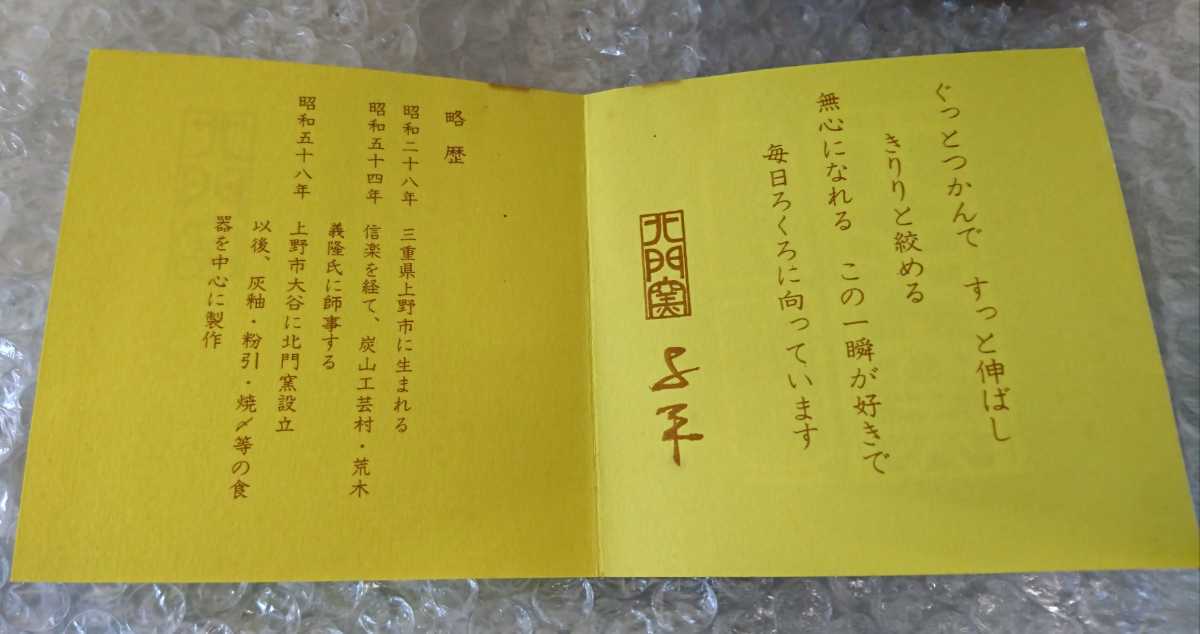 ぐっとつかんで　すっと伸ばし
きりりと絞める
無心になれる　この一瞬が好きで
毎日ろくろに向っています
北門窯
略歴
昭和二十八年　三重県上野市に生まれる
昭和五十四年　信楽を経て、炭山工芸村・荒木
義隆氏に師事する
昭和五十八年　上野市大谷に北門窯設立
以後、灰釉・粉引・焼〆等の食
器を中心に製作